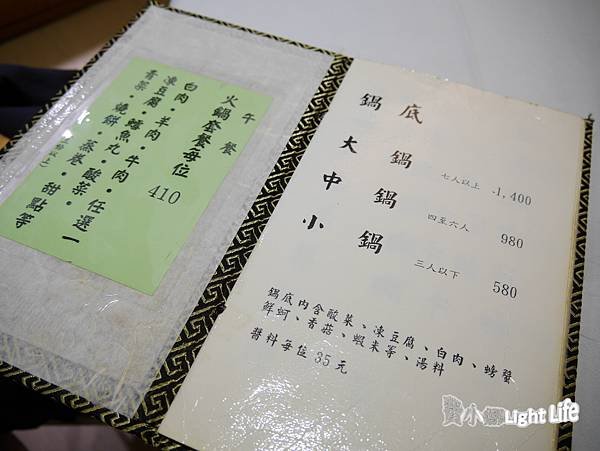 午餐
火鍋套餐每位 410
白肉·羊肉·牛肉·任選一
凍豆腐·鱈魚丸·酸菜·
青菜·燒餅·蒸卷·甜點等
鍋底
大鍋 七人以上 1,400
中鍋 四至六人 980
小鍋 三人以下 580
鍋底內含酸菜、凍豆腐、白肉、螃蟹
鮮蚵、香菇、蝦米等、湯料
醬料每位35元
小 Light Life